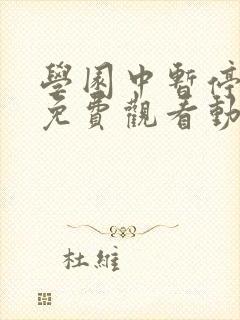 學園中暫停
免費觀看動
杜維